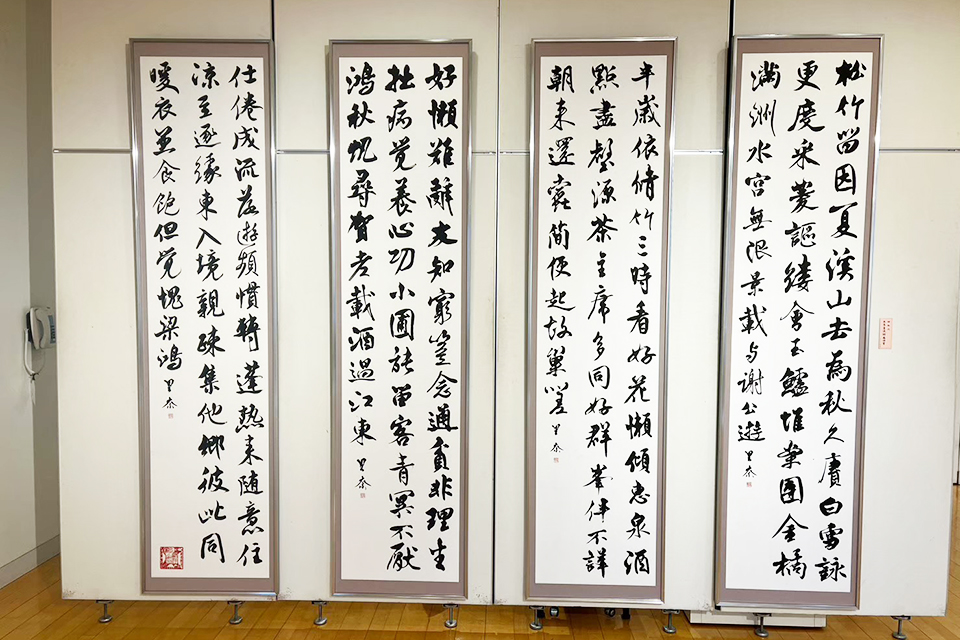 松竹留因夏溪山去為秋久賡白雪詠
更度采菱謳縷會玉鱸堆案團金橘
滿洲水宮無限景載与謝公遊
半歲依脩竹三時看好花懶傾惠泉酒
點盡壑源茶主席多同好群峯伴不譁
朝来還蠹簡便起故巢嗟
好懶難辭友知窮豈念通貧非理生
拙病覺養心功小圃能留客青冥不厭
鴻秋帆尋賀老載酒過江東
仕倦成流落遊頻慣轉蓬熱来隨意住
涼至逐緣東入境親疎集他鄉彼此同
暖衣並食飽但覺愧梁鴻